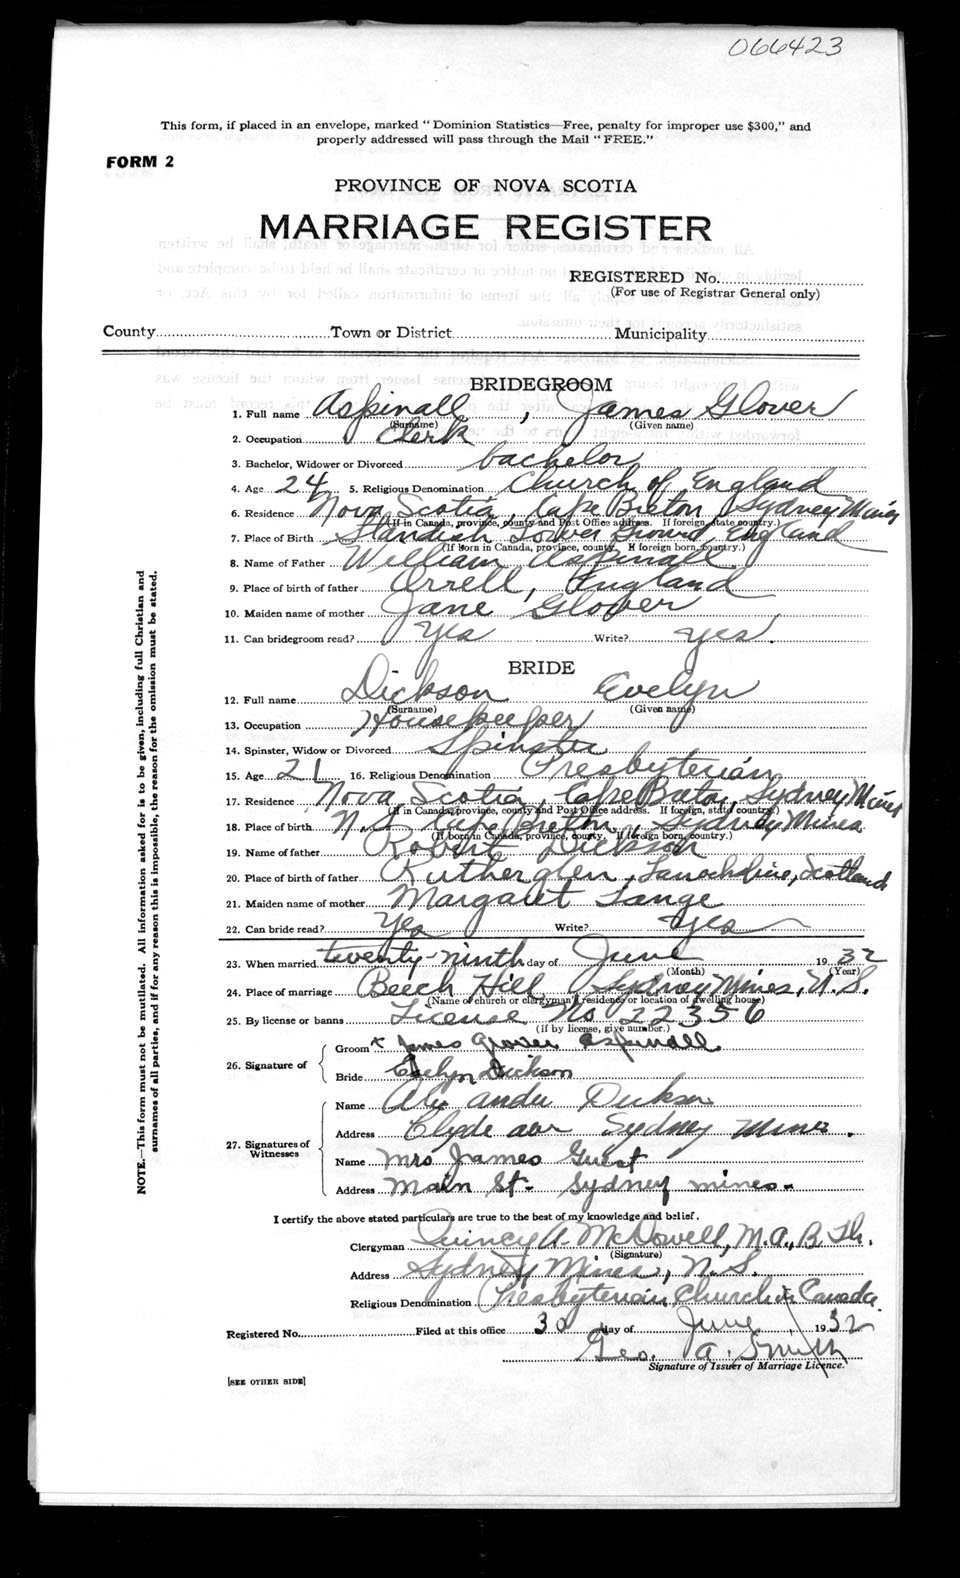 066423
This form, if placed in an envelope, marked " Dominion Statistics—Free, penalty for improper use $300," and
properly addressed will pass through the Mail " FREE."
FORM 2
PROVINCE OF NOVA SCOTIA
MARRIAGE REGISTER
REGISTERED No.
(For use of Registrar General only)
County Town or District Municipality
BRIDEGROOM
1. Full name Aspinall, James Glover
(Surname) (Given name)
2. Occupation Clerk
3. Bachelor, Widower or Divorced bachelor
4. Age 24 5. Religious Denomination Church of England
6. Residence Nova Scotia, Cape Breton, Sydney Mines
(If in Canada, province, county and Post Office address. If foreign, state country.)
7. Place of Birth Standish Lower Ground England
(If born in Canada, province, county. If foreign born, country.)
8. Name of Father William Aspinall
9. Place of birth of father Orrell, England
10. Maiden name of mother Jane Glover
11. Can bridegroom read? Yes Write? yes.
BRIDE
12. Full name Dickson Evelyn
(Surname) (Given name)
13. Occupation Housekeeper
14. Spinster, Widow or Divorced Spinster
15. Age 21 16. Religious Denomination Presbyterian
17. Residence Nova Scotia, Cape Breton, Sydney Mines
(If in Canada, province, county and Post Office address. If foreign, state country.)
18. Place of birth N.S. Cape Breton, Sydney Mines
(If born in Canada, province, county. If foreign born, country.)
19. Name of father Robert Dickson
20. Place of birth of father Rutherglen, Scotland
21. Maiden name of mother Margaret Lange
22. Can bride read? Yes Write? Yes
23. When married twenty-ninth day of June 1932
(Month) (Year)
24. Place of marriage Beech Hill, Sydney Mines, N.S.
(Name of church or clergyman's residence or location of dwelling house)
25. By license or banns License No 22356
(if by license, give number.)
26. Signature of
Groom x James Glover Aspinall
Bride Evelyn Dickson
27. Signatures of Witnesses
Name Alexander Dickson
Address Clyde ave Sydney Mines.
Name Mrs James Guest
Address Main St. Sydney mines.
I certify the above stated particulars are true to the best of my knowledge and belief.
Clergyman Quincy A. McDowell, M.A., B.Th.
(Signature)
Address Sydney Mines, N.S.
Religious Denomination Presbyterian Church in Canada
Registered No. Filed at this office 30 day of June 1932
Geo. A. Smith
Signature of Issuer of Marriage Licence.
[SEE OTHER SIDE]
NOTE.—This form must not be mutilated. All information asked for is to be given, including full Christian and
surnames of all parties, and if for any reason this is impossible, the reason for the omission must be stated.